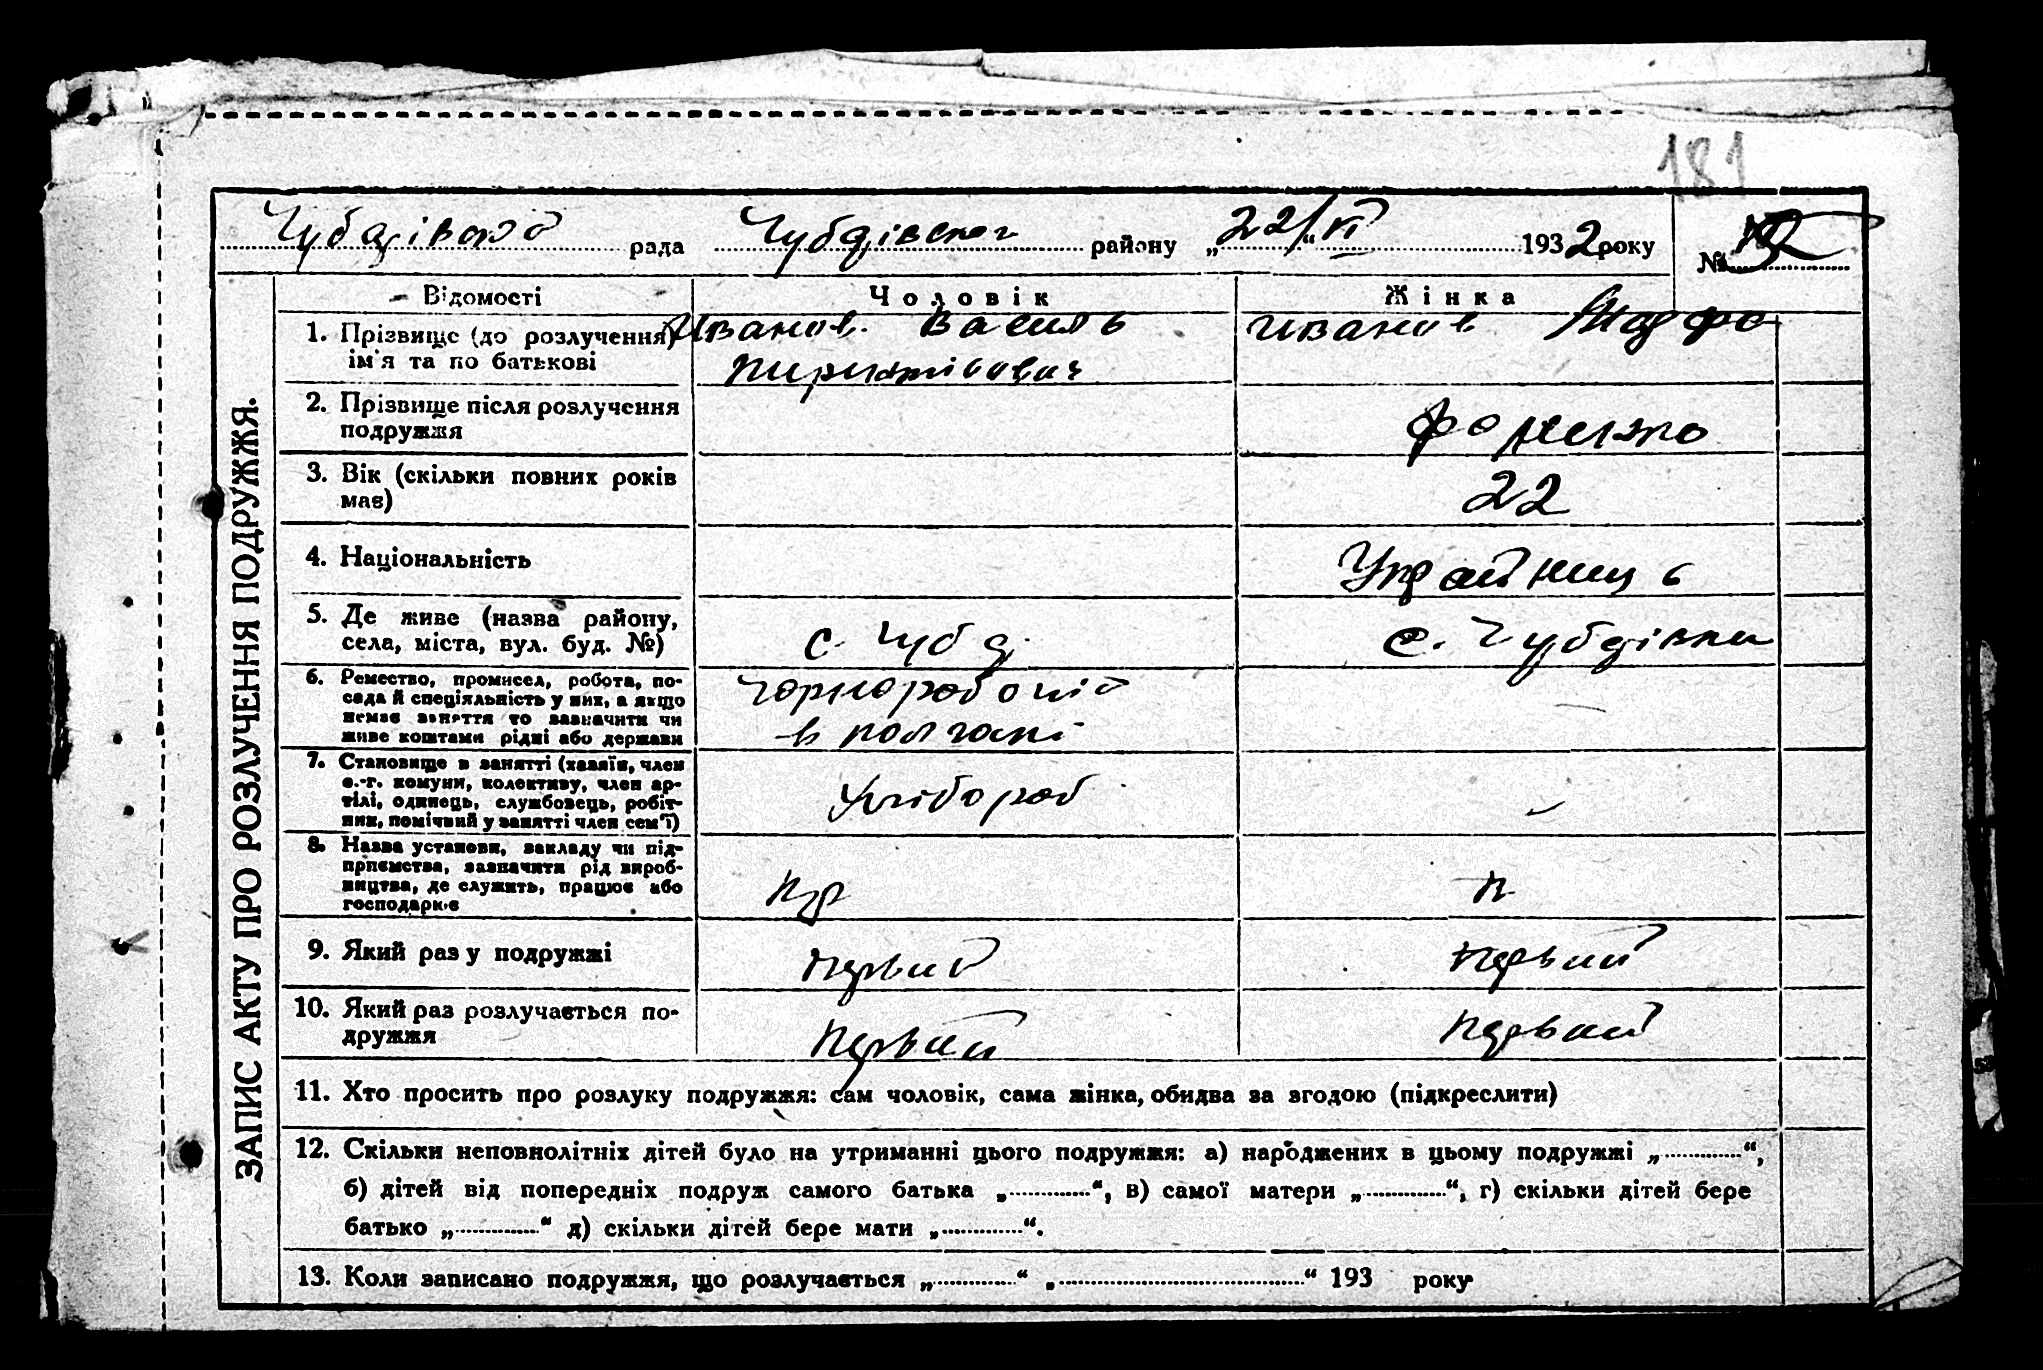 181
рада Чубарівськ району „22/VI“ 1932 року №
ЗАПИС АКТУ ПРО РОЗЛУЧЕННЯ ПОДРУЖЖЯ.
Відомості Чоловік Жінка
1. Прізвище (до розлучення) Иванов Василь Иванов Марфа
ім'я та по батькові
2. Прізвище після розлучення
подружжя
3. Вік (скільки повних років 22
має)
4. Національність Украйинць
5. Де живе (назва району,
села, міста, вул. буд. №) с. Чуб с.
6. Ремество, промисел, робота, по-
сада й спеціяльність у них, а якщо
немає заняття то зазначити чи
живе коштами рідні або держави в
7. Становище в занятті (хазяїн, член
с.-г. комуни, колективу, член ар-
тілі, одинець, службовець, робіт-
ник, помічний у занятті член сем'ї)
8. Назва установи, закладу чи під-
приємства, зазначити рід вироб-
ництва, де служить, працює або
господарює
9. Який раз у подружжі первий первий
10. Який раз розлучається по-
дружжя Первий первий
11. Хто просить про розлуку подружжя: сам чоловік, сама жінка, обидва за згодою (підкреслити)
12. Скільки неповнолітніх дітей було на утриманні цього подружжя: а) народжених в цьому подружжі „.............“,
б) дітей від попередніх подруж самого батька „.............“, в) самої матери „.............“, г) скільки дітей бере
батько „.............“ д) скільки дітей бере мати „.............“.
13. Коли записано подружжя, що розлучається „.............“ „.............“ 193 року